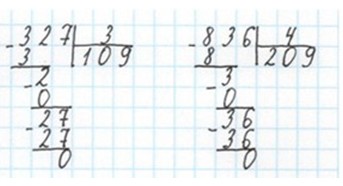 -327|3
3 |109
-2
0
-27
27
0
-836|4
8 |209
-3
0
-36
36
0